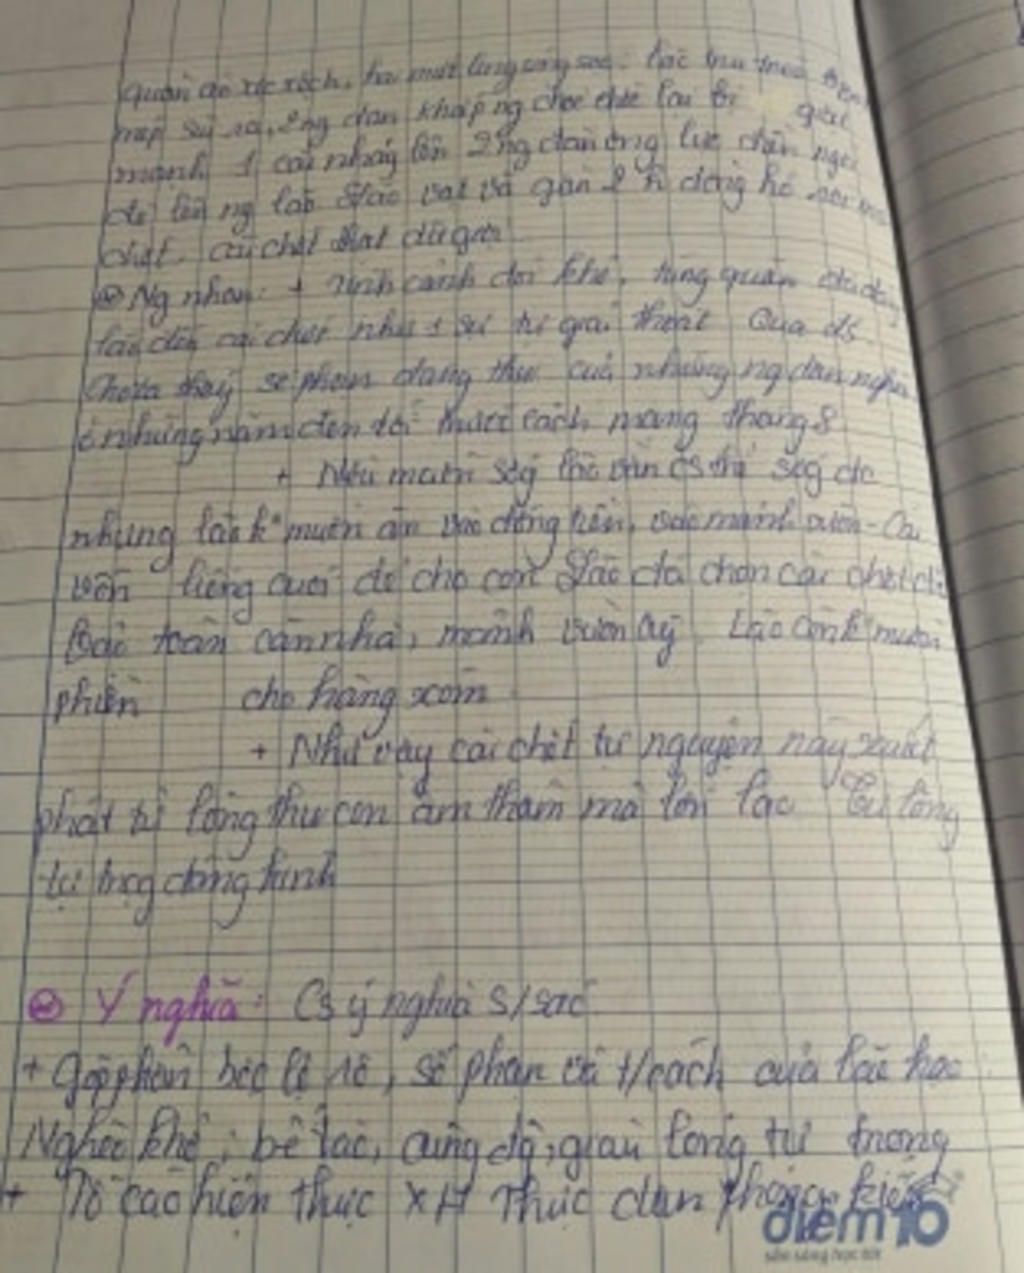 quần áo xộc xệch, hai mắt long sòng sọc. Lão tru tréo, bọt
mép sùi ra, ng chốc chốc lại bị giật
mạnh 1 cái nhảy lên 2 ng đàn ông lực
đè lên ng lão. Lão vật vã gần 2 h đồng hồ
chết. cái chết thật dữ gội
Ng nhân: + tình cảnh đói khổ, túng quẫn đã
lão đến cái chết như 1 sự tự giải thoát. Qua
thấy số phận đáng thg của những ng dân nghèo
ở những năm đen tối trước cách mạng tháng 8
+ Nếu
nhưng lão k° muốn ăn vào đồng tiền, vào mảnh vườn - Cái
vốn liếng cuối để cho con. Lão đã chọn cái chết
bảo toàn căn nhà, mảnh vườn ấy. Lão còn k° muốn
phiền cho hàng xóm
+ Như vậy cái chết tự nguyện này xuất
phát từ lòng thg con âm thầm mà lớn lao. Từ lòng
tự trọg đáng kính
Ý nghĩa: Cs ý nghĩa s/sắc
+ Góp phần bộc lộ rõ, số phận và t/cách của lão hạc
Nghèo khổ, bế tắc, cùng độ, giàu lòng tự trọng
+ Tố cáo hiện thực XH Thực dân phong kiến
điểm 10
sẵn sàng học tốt